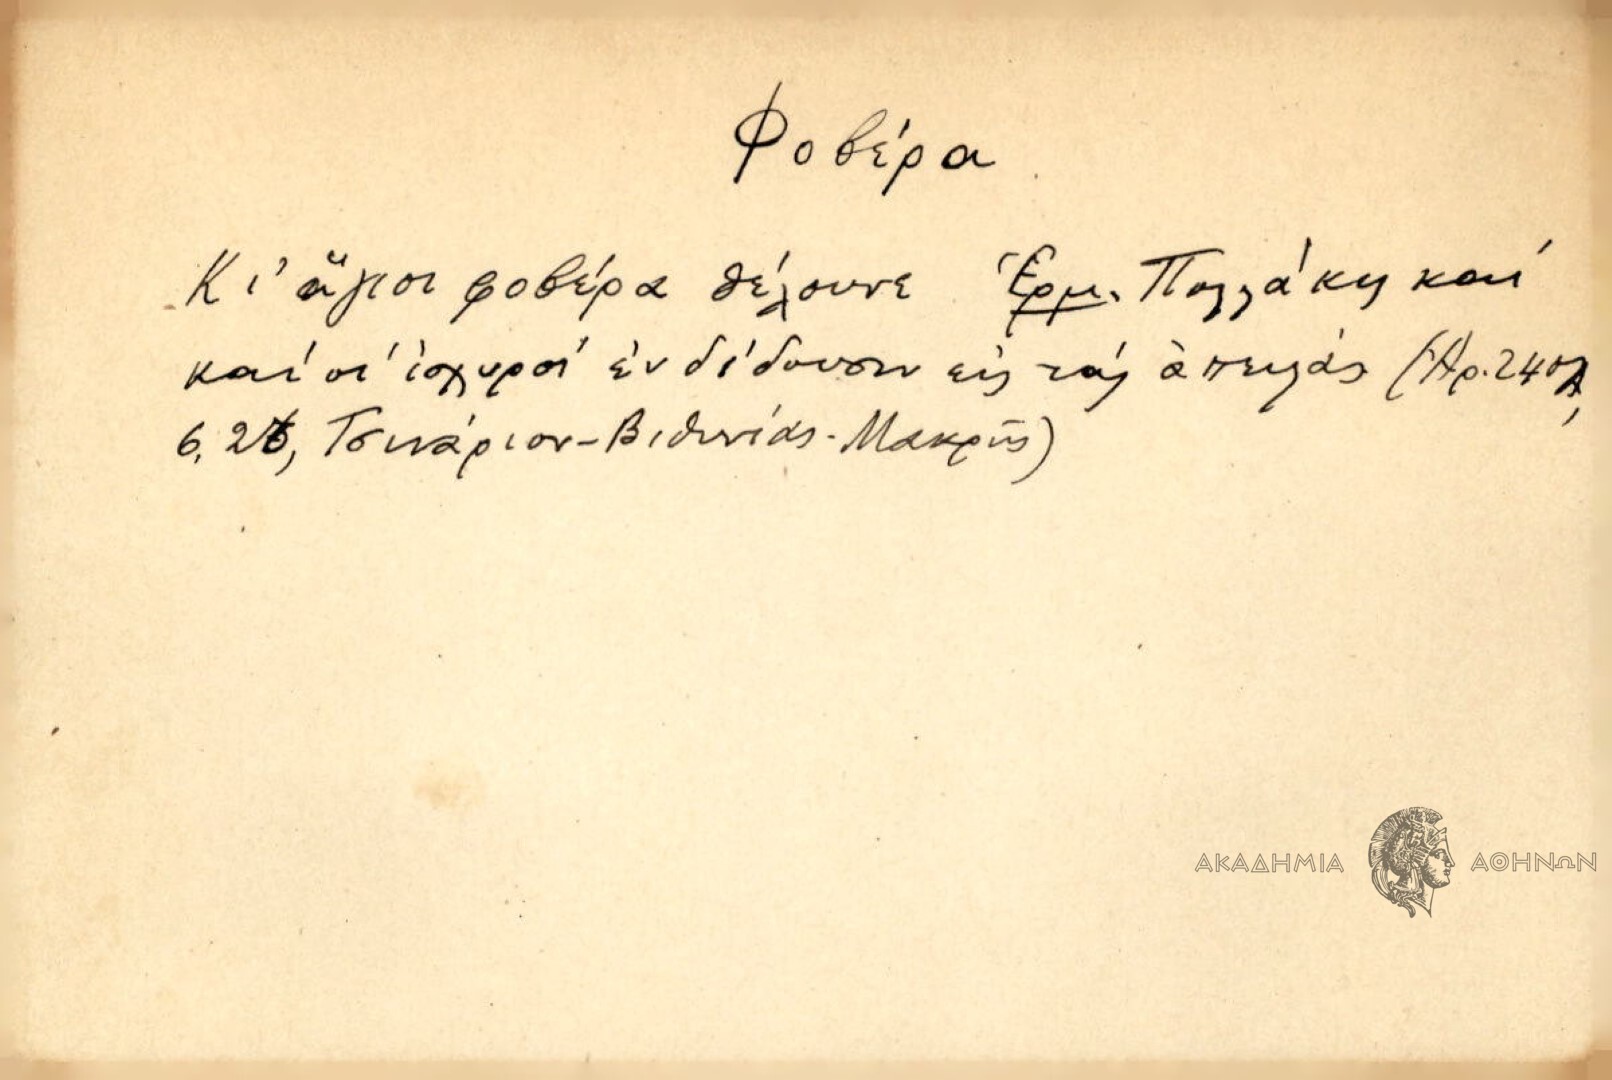 Φοβέρα
Κι' ἅγιοι φοβέρα θέλουνε Ἑρμ. Πολλάκις καί
καί οἱ ἰσχυροί ἐνδίδουσιν εἰς τάς ἀπειλάς (Ἀρ. 2401,
6, 26, Τσινάριον-Βιθυνίας-Μακρῆς)
ΑΚΑΔΗΜΙΑ ΑΘΗΝΩΝ